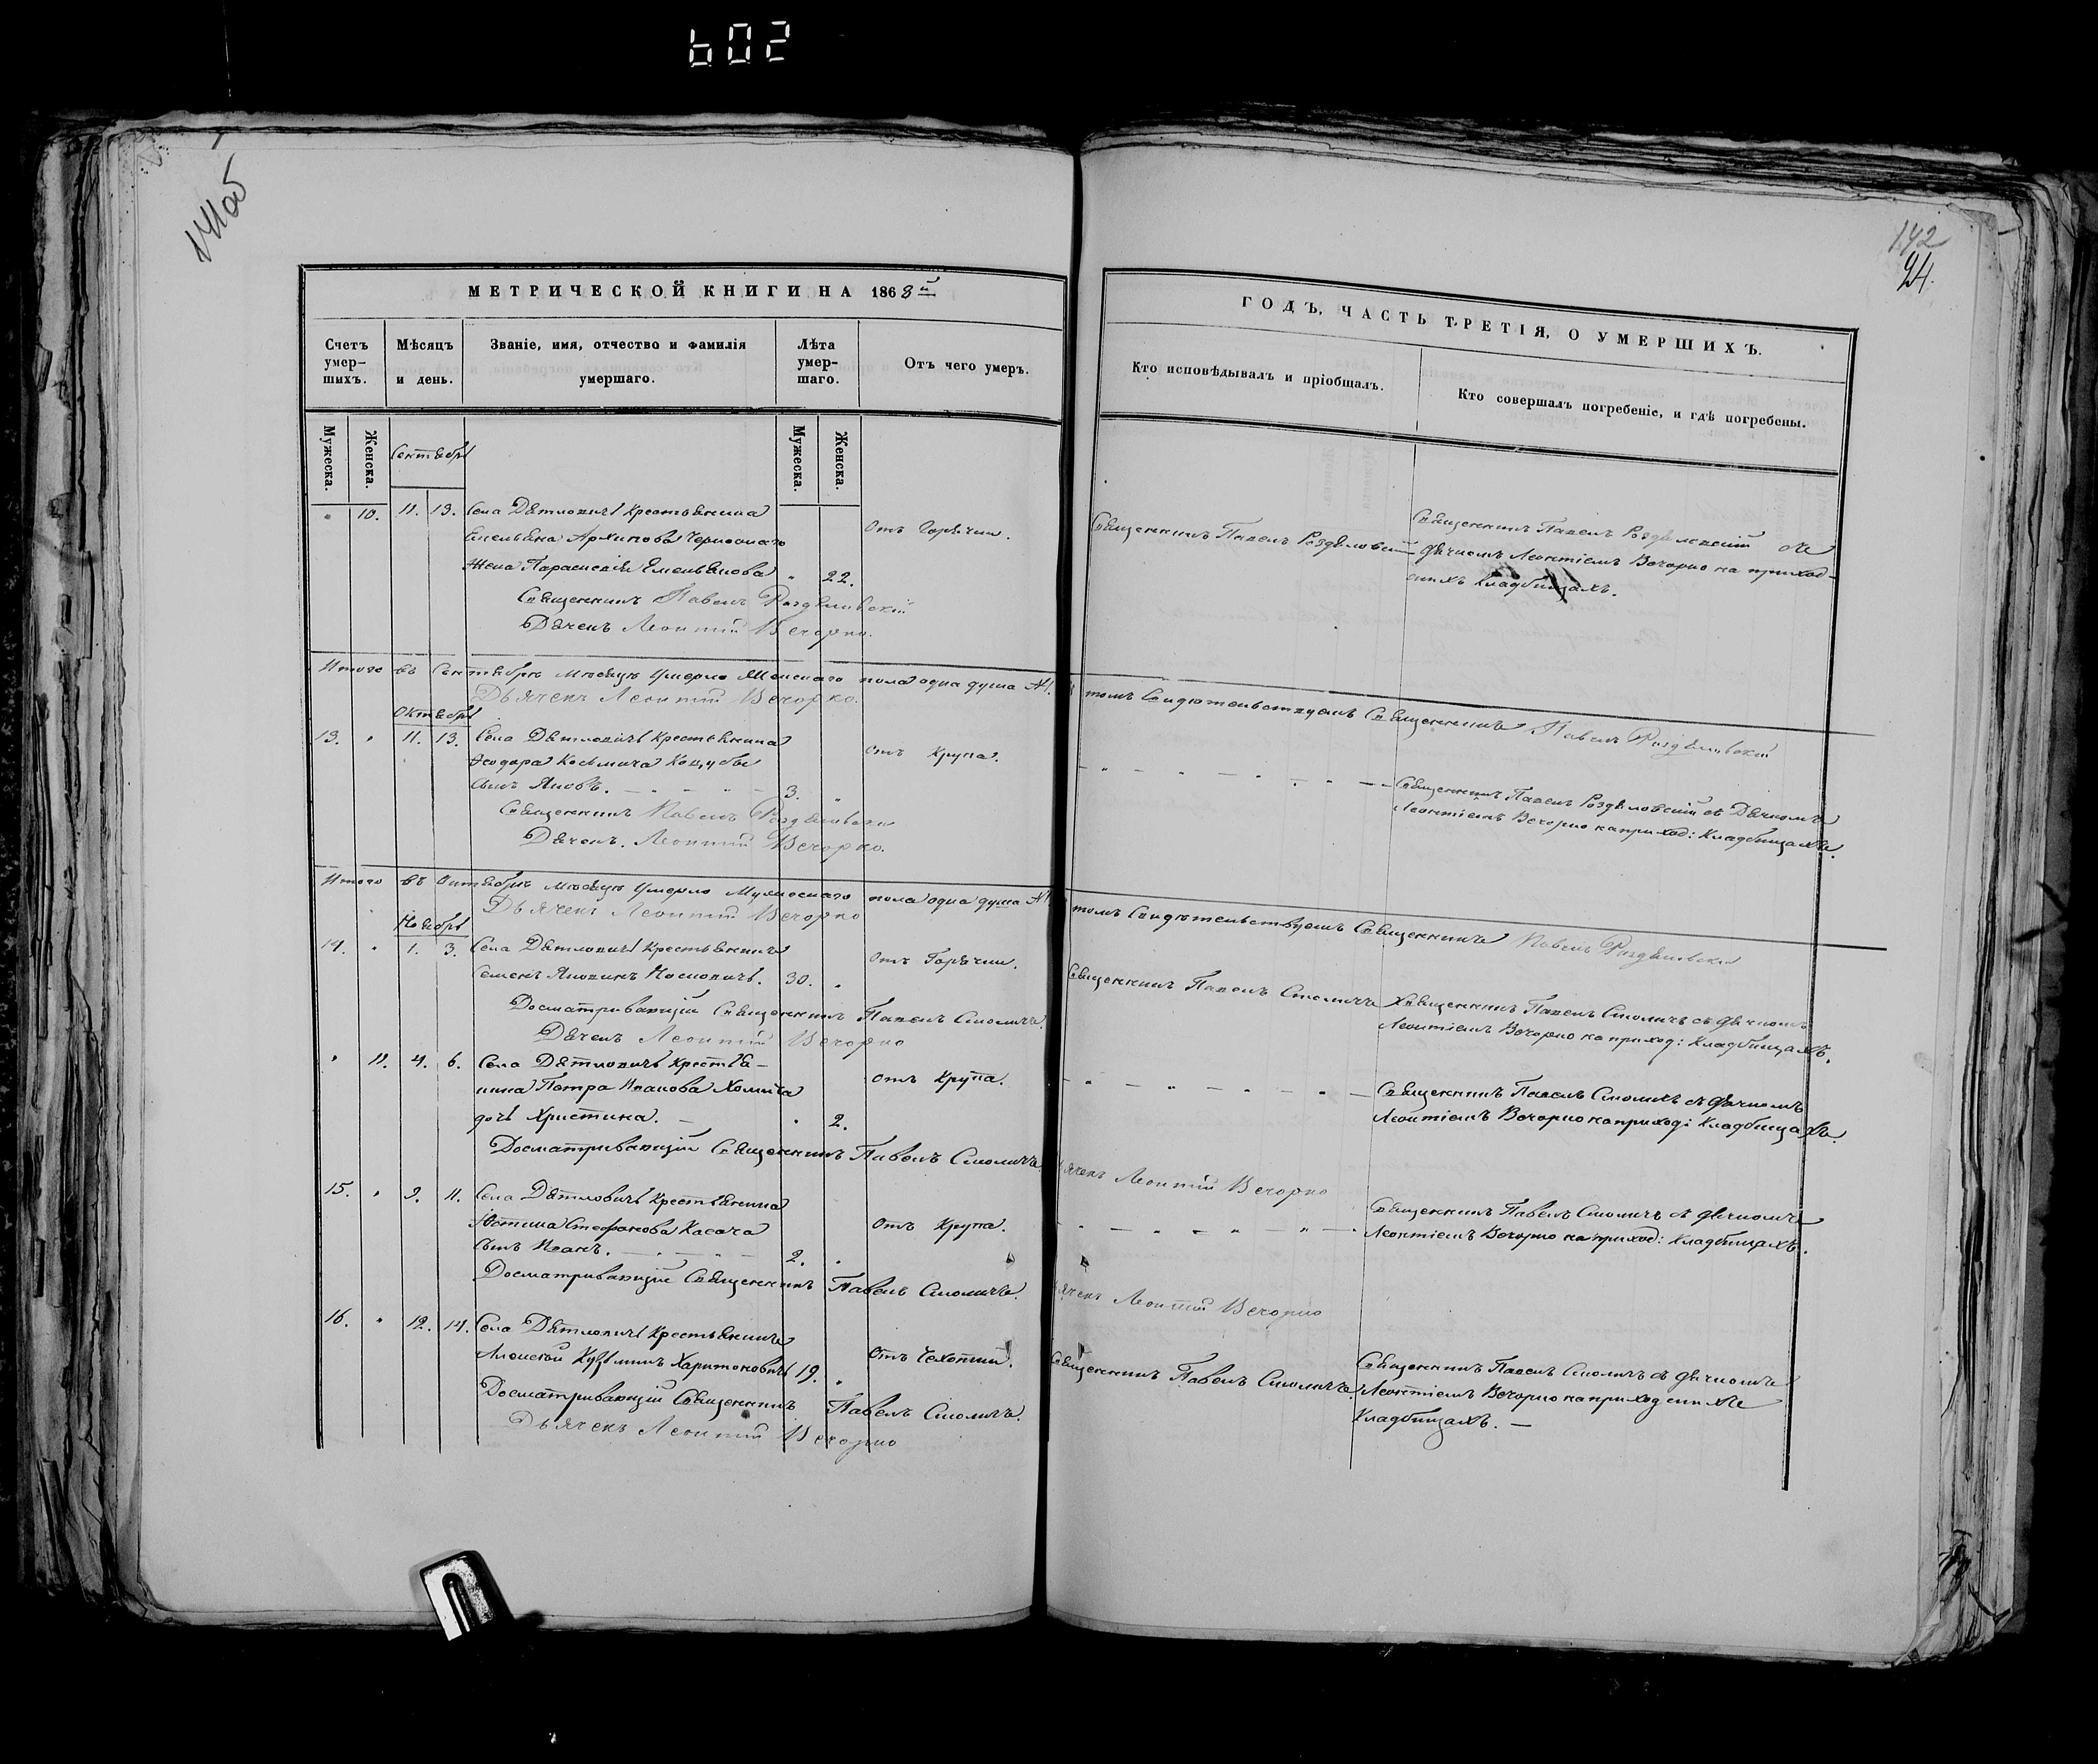 602
141об
142
24.
МЕТРИЧЕСКОЙ КНИГИ НА 1868й
ГОДЪ, ЧАСТЬ ТРЕТІЯ, О УМЕРШИХЪ.
Счетъ умер-
шихъ.
Мѣсяцъ
и день.
Званіе, имя, отчество и фамилія
умершаго.
Лѣта
умер-
шаго.
Отъ чего умеръ.
Кто исповѣдывалъ и пріобщалъ.
Кто совершалъ погребеніе, и гдѣ погребены.
Мужеска.
Женска.
Сентябрь
Мужеска.
Женска.
" 10. 11. 13. Села Дятловичь крестьянина
Емельяна Архипова
жена Параскевія Емельянова " 22.
Отъ Горячки.
Священникъ Павелъ Роздяловскій
Священникъ Павелъ Роздяловскій съ
дячкомъ Леонтіемъ Вечорко на приход-
скихъ кладбищахъ.
Священникъ Павелъ Роздяловскій
Дячекъ Леонтій Вечорко.
Итого въ Сентябрѣ мѣсяцѣ умерло Женскаго пола одна душа №1. томъ Свидѣтельствуемъ Священникъ Павелъ Роздяловскій
Дьячекъ Леонтій Вечорко.
Октябрь
13. " 11. 13. Села Дятловичь крестьянина
Ѳеодора Косьмича Коцубы
сынъ Яковъ. 3. "
Отъ Крупа.
Священникъ Павелъ Роздяловскій съ Дячкомъ
Леонтіемъ Вечорко на приход: Кладбищахъ.
Священникъ Павелъ Роздяловскій
Дячекъ. Леонтій Вечорко.
Итого въ Октябрѣ мѣсяцѣ умерло Мужескаго пола одна душа №1 томъ Свидѣтельствуемъ Священникъ Павелъ Роздяловскій
Дьячекъ Леонтій Вечорко
Ноябрь
14. " 1. 3. Села Дятловичь Крестьянинъ
Семенъ Яковинъ 30. "
Отъ Горячки.
Священникъ Павелъ Смоличъ
Священникъ Павелъ Смоличъ съ дячкомъ
Леонтіемъ Вечорко на приход: Кладбищахъ.
Досматривающій Священникъ Павелъ Смоличъ.
Дячекъ Леонтій Вечорко
" 11. 4. 6. Села Дятловичь Крестья-
нина Петра Иванова Хомича
дочь Христина. " 2.
Отъ Крупа.
Священникъ Павелъ Смоличъ съ дячкомъ
Леонтіемъ Вечорко на приход: Кладбищахъ.
Досматривающій Священникъ Павелъ Смоличъ.
Дьячекъ Леонтій Вечорко
15. " 9. 11. Села Дятловичь Крестьянина
Юстина Стефанова Касача
сынъ Иванъ. 2. "
Отъ Крупа.
Священникъ Павелъ Смоличъ съ дячкомъ
Леонтіемъ Вечорко на приход: Кладбищахъ.
Досматривающій Священникъ Павелъ Смоличъ.
Дьячекъ Леонтій Вечорко
16. " 12. 14. Села Дятловичь Крестьянинъ
Алексѣй Кузьминъ Харитоновичь 19. "
Отъ Чахотки.
Священникъ Павелъ Смоличъ.
Священникъ Павелъ Смоличъ съ дячкомъ
Леонтіемъ Вечорко на приходскихъ
Кладбищахъ. —
Досматривающій Священникъ Павелъ Смоличъ.
Дьячекъ Леонтій Вечорко